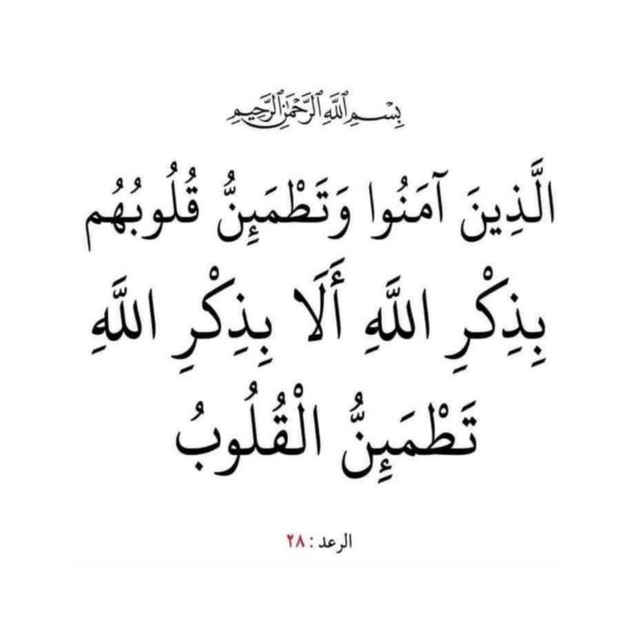 بِسْمِ اللَّهِ الرَّحْمَٰنِ الرَّحِيمِ
الَّذِينَ آمَنُوا وَتَطْمَئِنُّ قُلُوبُهُم
بِذِكْرِ اللَّهِ أَلَا بِذِكْرِ اللَّهِ
تَطْمَئِنُّ الْقُلُوبُ
الرعد : ٢٨